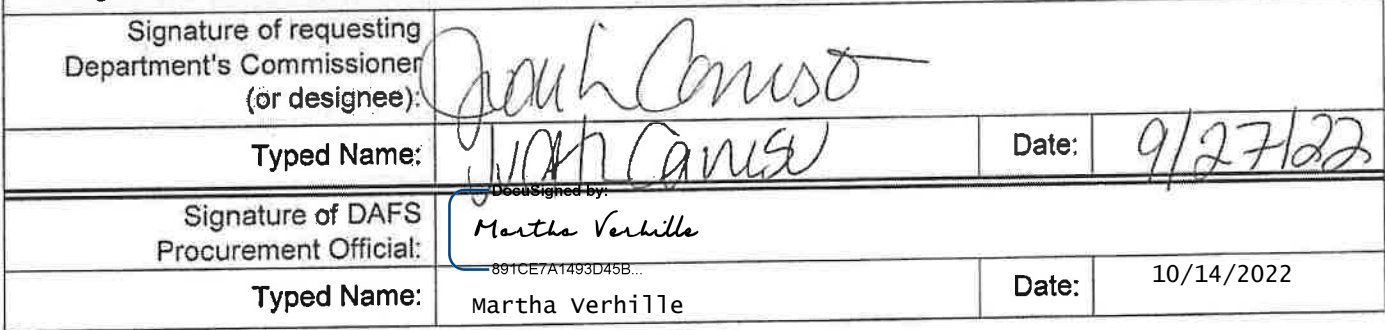 Signature of requesting
Department's Commissioner
(or designee):
Typed Name:
Caruso
Date: 9/27/22
DocuSigned by:
Signature of DAFS
Procurement Official:
Martha Verhille
891CE7A1493D45B...
Typed Name: Martha Verhille
Date: 10/14/2022